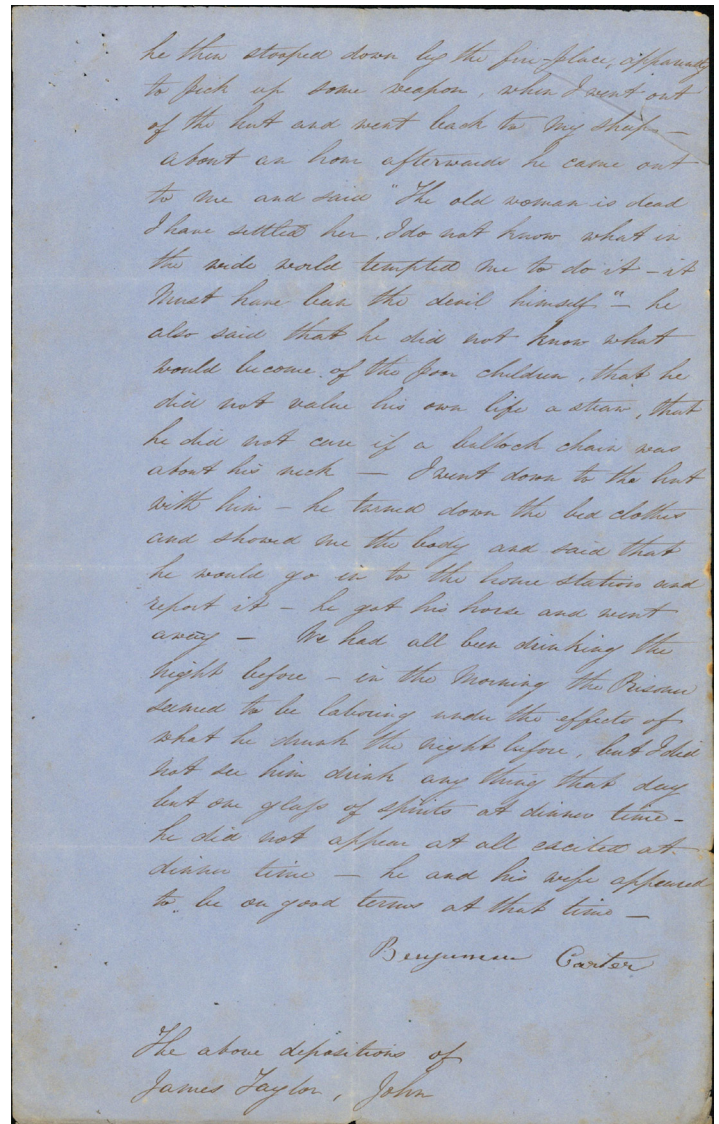 he then stooped down by the fire-place, apparently
to pick up some weapon, when I went out
of the hut and went back to my sheep —
about an hour afterwards he came out
to me and said "The old woman is dead
I have settled her, I do not know what in
the wide world tempted me to do it - it
must have been the devil himself" - he
also said that he did not know what
would become of the poor children, that he
did not value his own life a straw, that
he did not care if a bullock chain was
about his neck — I went down to the hut
with him - he turned down the bed clothes
and showed me the body and said that
he would go in to the home station and
report it - he got his horse and went
away — We had all been drinking the
night before - in the Morning the Prisoner
seemed to be laboring under the effects of
what he drunk the night before, but I did
not see him drink any thing that day
but one glass of spirits at dinner time -
he did not appear at all excited at
dinner time — he and his wife appeared
to be on good terms at that time —
Benjumen Carter
The above depositions of
James Taylor, John